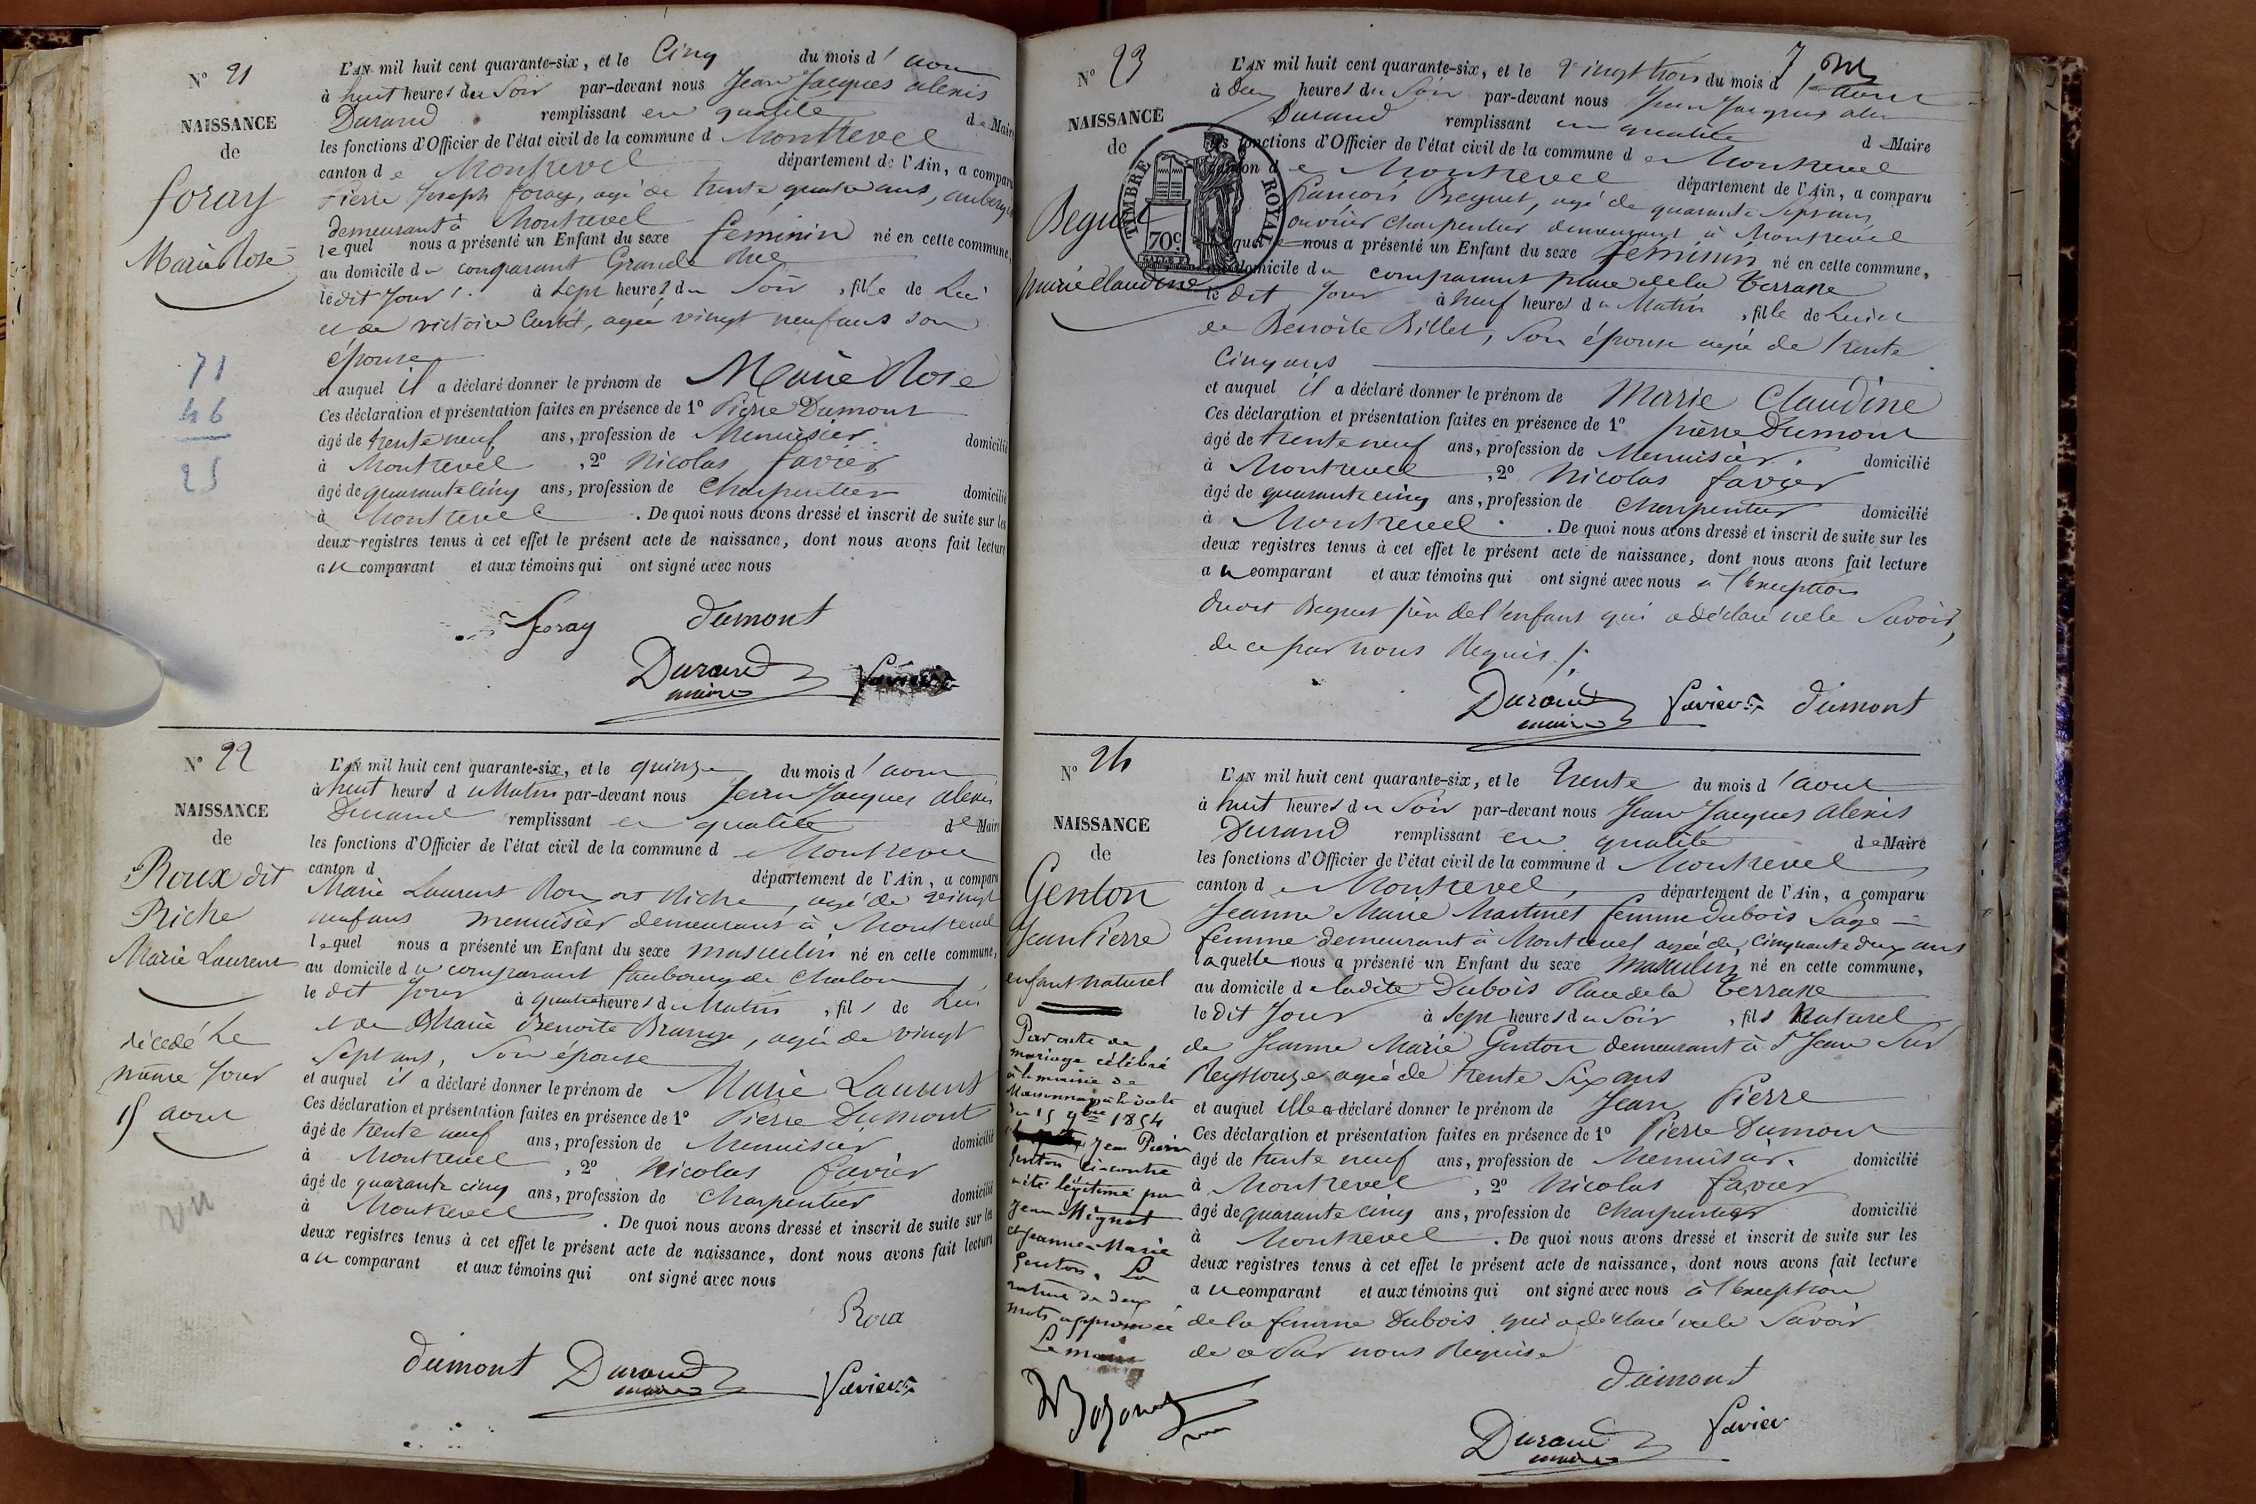 N° 21
NAISSANCE
de
foray
Marie Rose
71
46
25
L'AN mil huit cent quarante-six, et le Cinq du mois d'aout
à huit heures du Soir par-devant nous Jean Jacques alexis
Durand remplissant en qualité de Maire
les fonctions d'Officier de l'état civil de la commune d Montrevel
canton de Montrevel département de l'Ain, a comparu
Pierre Joseph foray, agé de trente quatre ans,
demeurant à Montrevel
lequel nous a présenté un Enfant du sexe feminin né en cette commune,
au domicile du comparant Grande Rue
le dit Jour à Sept heures du Soir, fille de Lui
et de victoire, agée vingt neuf ans son
épouse
et auquel il a déclaré donner le prénom de Marie Rose
Ces déclaration et présentation faites en présence de 1° Pierre Dumont
âgé de trente neuf ans, profession de Menuisier domicilié
à Montrevel, 2° Nicolas favier
âgé de quarante cinq ans, profession de Charpentier domicilié
à Montrevel. De quoi nous avons dressé et inscrit de suite sur les
deux registres tenus à cet effet le présent acte de naissance, dont nous avons fait lecture
au comparant et aux témoins qui ont signé avec nous
foray dumont
Durand favier
maire
N° 22
NAISSANCE
de
Roux dit
Riche
Marie Laurent
décédé Le
même Jour
15 aout
L'AN mil huit cent quarante-six, et le quinze du mois d'aout
à huit heures du Matin par-devant nous Jean Jacques alexis
Durand remplissant en qualité de Maire
les fonctions d'Officier de l'état civil de la commune de Montrevel
canton d département de l'Ain, a comparu
Marie Laurent Roux dit Riche, agé de vingt
neuf ans menuisier demeurant à Montrevel
lequel nous a présenté un Enfant du sexe masculin né en cette commune,
au domicile du comparant faubourg de Chalon
le dit Jour à quatre heures du Matin, fils de Lui
et de Marie Benoite, agée de vingt
Sept ans, Son épouse
et auquel il a déclaré donner le prénom de Marie Laurent
Ces déclaration et présentation faites en présence de 1° Pierre Dumont
âgé de trente neuf ans, profession de Menuisier domicilié
à Montrevel, 2° Nicolas favier
âgé de quarante cinq ans, profession de Charpentier domicilié
à Montrevel. De quoi nous avons dressé et inscrit de suite sur les
deux registres tenus à cet effet le présent acte de naissance, dont nous avons fait lecture
au comparant et aux témoins qui ont signé avec nous
dumont Durand favier
maire
7
N° 23
NAISSANCE
de
Beguet
marie Claudine
TIMBRE ROYAL
70c
L'AN mil huit cent quarante-six, et le vingt trois du mois d'aout
à deux heures du Soir par-devant nous Jean Jacques alex
Durand remplissant en qualité de Maire
les fonctions d'Officier de l'état civil de la commune de Montrevel
canton de Montrevel département de l'Ain, a comparu
francois Beguet, agé de quarante Sept ans
ouvrier charpentier demeurant à Montrevel
lequel nous a présenté un Enfant du sexe feminin né en cette commune,
au domicile du comparant place de la terrasse
le dit Jour à neuf heures du Matin, fille de Lui et
de Benoite Billet, Son épouse agée de trente
Cinq ans
et auquel il a déclaré donner le prénom de Marie Claudine
Ces déclaration et présentation faites en présence de 1° pierre Dumont
âgé de trente neuf ans, profession de Menuisier domicilié
à Montrevel, 2° Nicolas favier
âgé de quarante cinq ans, profession de Charpentier domicilié
à Montrevel. De quoi nous avons dressé et inscrit de suite sur les
deux registres tenus à cet effet le présent acte de naissance, dont nous avons fait lecture
au comparant et aux témoins qui ont signé avec nous à l'exception
dudit Beguet père de l'enfant qui a déclaré ne le Savoir,
de ce par nous Requis
Durand favier dumont
maire
N° 24
NAISSANCE
de
Genton
Jean Pierre
enfant naturel
Par acte de
mariage célébré
à la mairie de
du 15 9bre 1854
Jean Pierre
Genton ci-contre
a été légitimé par
Jean Mignot
et Jeanne-Marie
Genton. La
rature de deux
mots approuvée
Le maire
L'AN mil huit cent quarante-six, et le trente du mois d'aout
à huit heures du Soir par-devant nous Jean Jacques alexis
Durand remplissant en qualité de Maire
les fonctions d'Officier de l'état civil de la commune d Montrevel
canton de Montrevel, département de l'Ain, a comparu
Jeanne Marie Martinet femme dubois Sage-
femme demeurant à Montrevel agée de cinquante deux ans
laquelle nous a présenté un Enfant du sexe masculin né en cette commune,
au domicile de ladite Dubois Place de la terrasse
le dit Jour à sept heures du Soir, fils Naturel
de Jeanne Marie Genton demeurant à St Jean Sur
Reyssouze agée de trente Six ans
et auquel elle a déclaré donner le prénom de Jean Pierre
Ces déclaration et présentation faites en présence de 1° Pierre Dumont
âgé de trente neuf ans, profession de Menuisier domicilié
à Montrevel, 2° Nicolas favier
âgé de quarante cinq ans, profession de Charpentier domicilié
à Montrevel. De quoi nous avons dressé et inscrit de suite sur les
deux registres tenus à cet effet le présent acte de naissance, dont nous avons fait lecture
au comparant et aux témoins qui ont signé avec nous à l'exception
de la femme Dubois qui a déclaré ne le Savoir
de ce Par nous Requise
dumont
Durand favier
maire